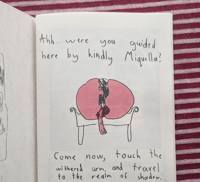 Ahh were you guided
here by kindly Miquella?
Come now, touch the
withered arm, and travel
to the realm of shadow.